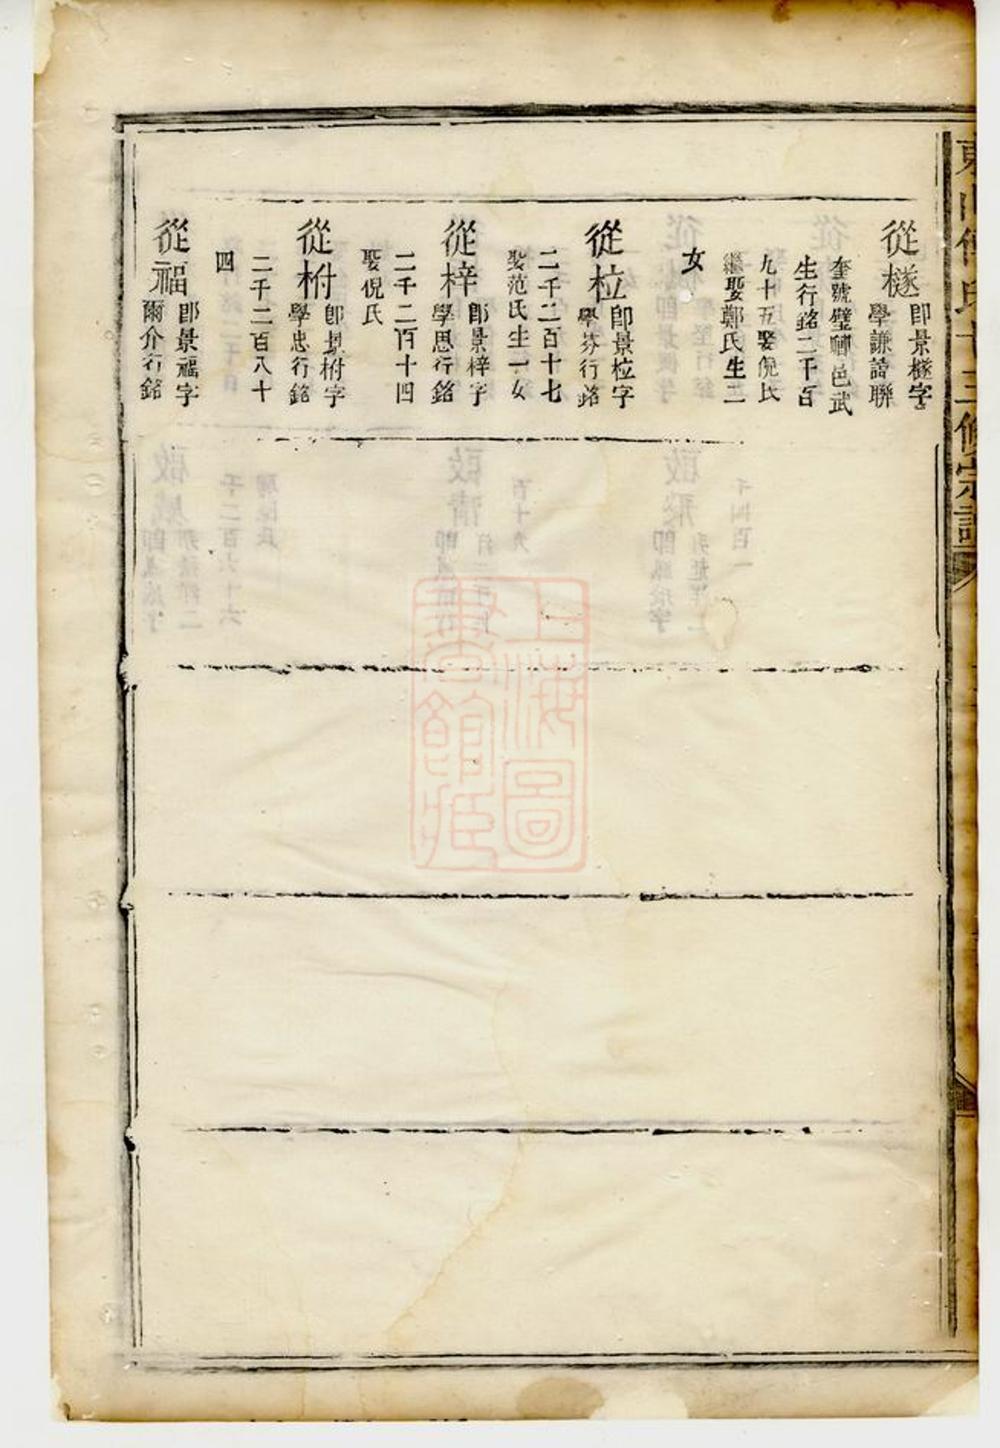 從檖
卽景檖字
學謙諳聯
奎號璧卿邑武
生行銘二千百
九十五娶倪氏
繼娶鄭氏生三
女
從柆
卽景柆字
學芬行銘
二千二百十七
娶范氏生一女
從梓
卽景梓字
學思行銘
二千二百十四
娶倪氏
從柎
卽景柎字
學忠行銘
二千二百八十
四
從福
卽景福字
爾介行銘
上海圖
書館藏